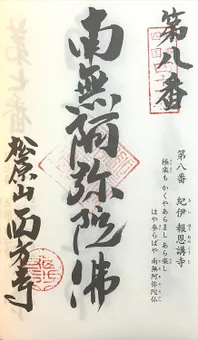 第八番
第八番　紀伊　報恩講寺
極楽も　かくやあらまし　あら楽し
はや参らばや　南無阿弥陀仏
南無阿弥陀佛
松原山　西方寺